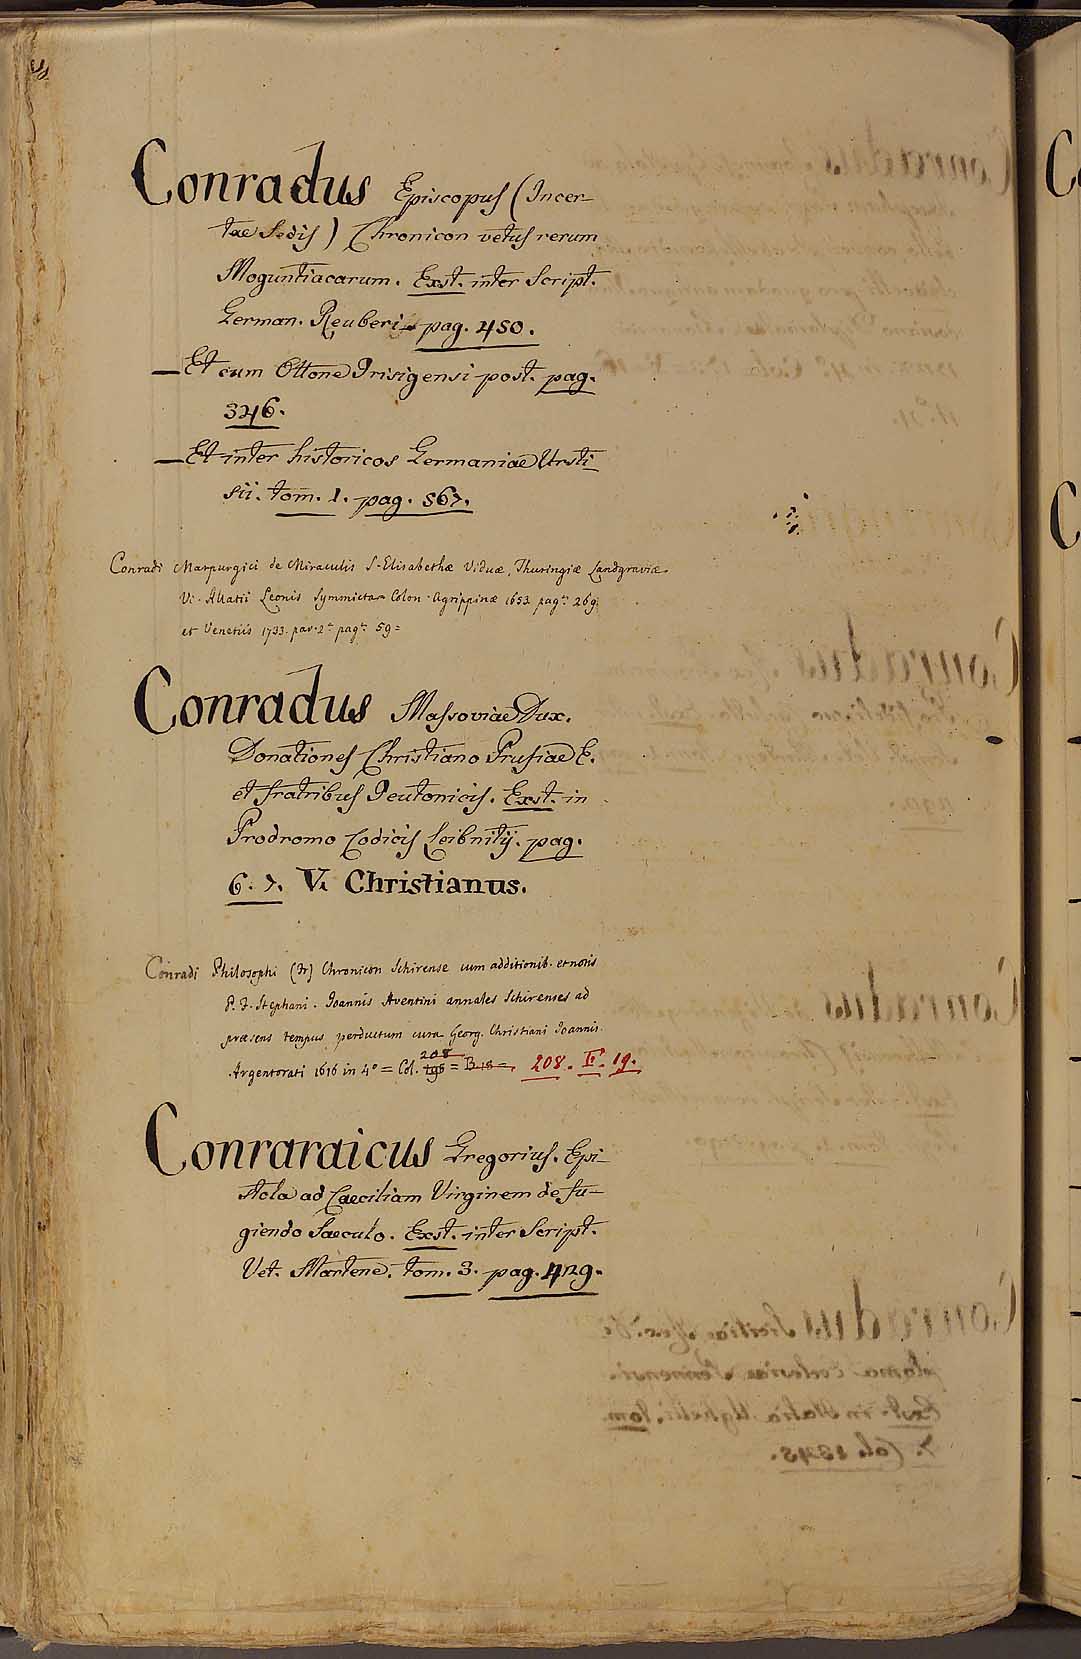 Conradus Episcopus (Incer-
tae Sedis) Chronicon vetus rerum
Moguntiacarum. Exst. inter Script.
German. Reuberi pag. 450.
— Et cum Ottone Frisigensi post. pag.
346.
— Et inter historicos Germaniae Ursti
sii. tom. 1. pag. 567.
Conradi Marpurgici de Miraculis S. Elisabethæ Viduæ, Thuringiæ Landgraviæ
Vi. Allatii Leonis Symmicta Colon. Agrippinæ 1653. pag. 269.
et Venetiis 1733. par. 2a pag. 59=
Conradus Massoviae Dux.
Donationes Christiano Prusiae E.
et fratribus Teutonicis. Exst. in
Prodromo Codicis Leibnitij. pag.
6. 7. V. Christianus.
Conradi Philosophi (Fr) Chronicon Schirense cum additionib. et notis
P. F. Stephani. Joannis Aventini annales Schirenses ad
præsens tempus perductum cura Georg. Christiani Joannis.
Argentorati 1616 in 4° = Col. 198 208 = B. 18 = 208. F. 19.
Conraraicus Gregorius. Epi-
stola ad Caeciliam Virginem de fu-
giendo Saeculo. Exst. inter Script.
Vet. Martene. tom. 3. pag. 429.